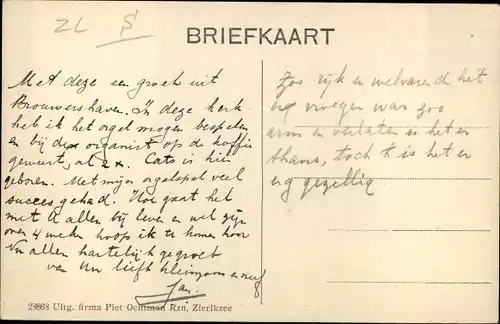 ZL
BRIEFKAART
Met deze een groet uit
Brouwershaven. In deze kerk
heb ik het orgel mogen bespelen
en bij de organist op de koffie
geweest, al 2 x. Cats is hier
geboren. Met mijn orgelspel veel
succes gehad. Hoe gaat het
met U allen bij leven en wel zijn
over 4 weken hoop ik te komen hoor
Nu allen hartelijk gegroet
van Uw liefh kleinzoon en neef
Jan.
Zoo rijk en welvarend het
er vroeger was zoo
arm en verlaten is het er
thans, toch is het er
erg gezellig
29863 Uitg. firma Piet Ochtman Rzn, Zierikzee